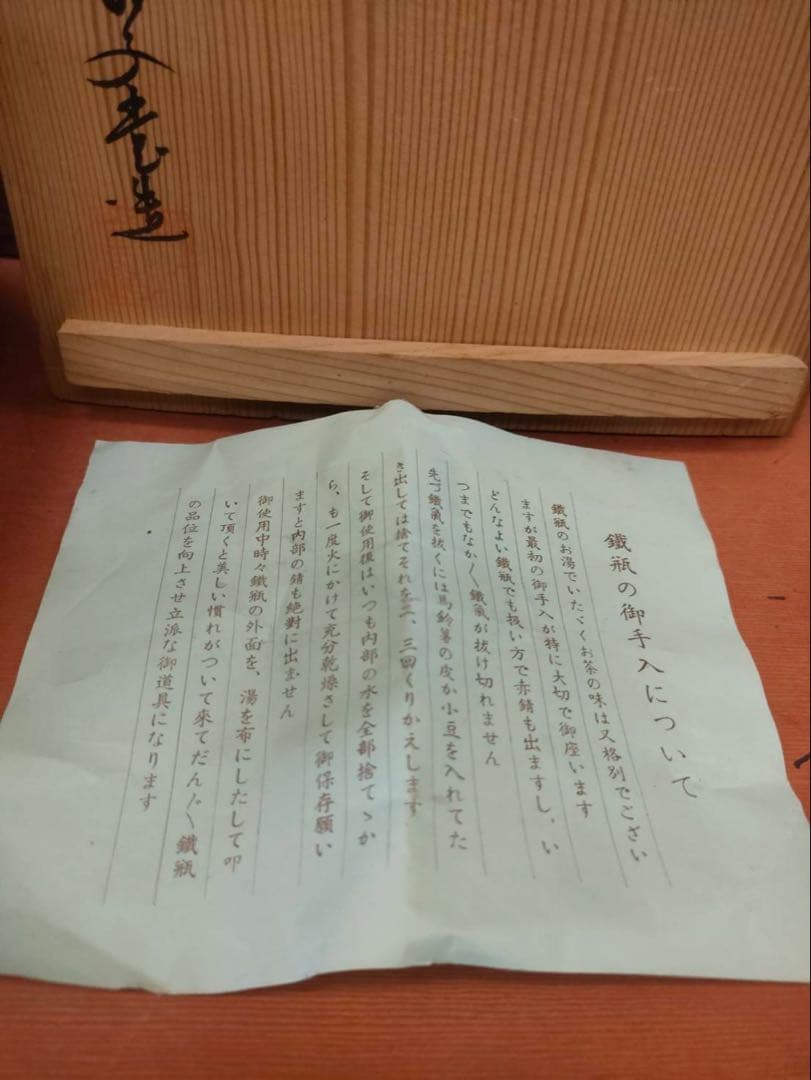 造
鐵瓶の御手入について
鐵瓶のお湯でいたゞくお茶の味は又格別でござい
ますが最初の御手入が特に大切で御座います
どんなよい鐵瓶でも扱い方で赤錆も出ますし、い
つまでもなか〳〵鐵氣が拔け切れません
先づ鐵氣を拔くには馬鈴薯の皮か小豆を入れてた
き出しては捨てそれを二、三回くりかえします
そして御使用後はいつも内部の水を全部捨てゝか
ら、も一度火にかけて充分乾燥さして御保存願い
ますと内部の錆も絶對に出ません
御使用中時々鐵瓶の外面を、湯を布にしたして叩
いて頂くと美しい慣れがついて來てだん〴〵鐵瓶
の品位を向上させ立派な御道具になります